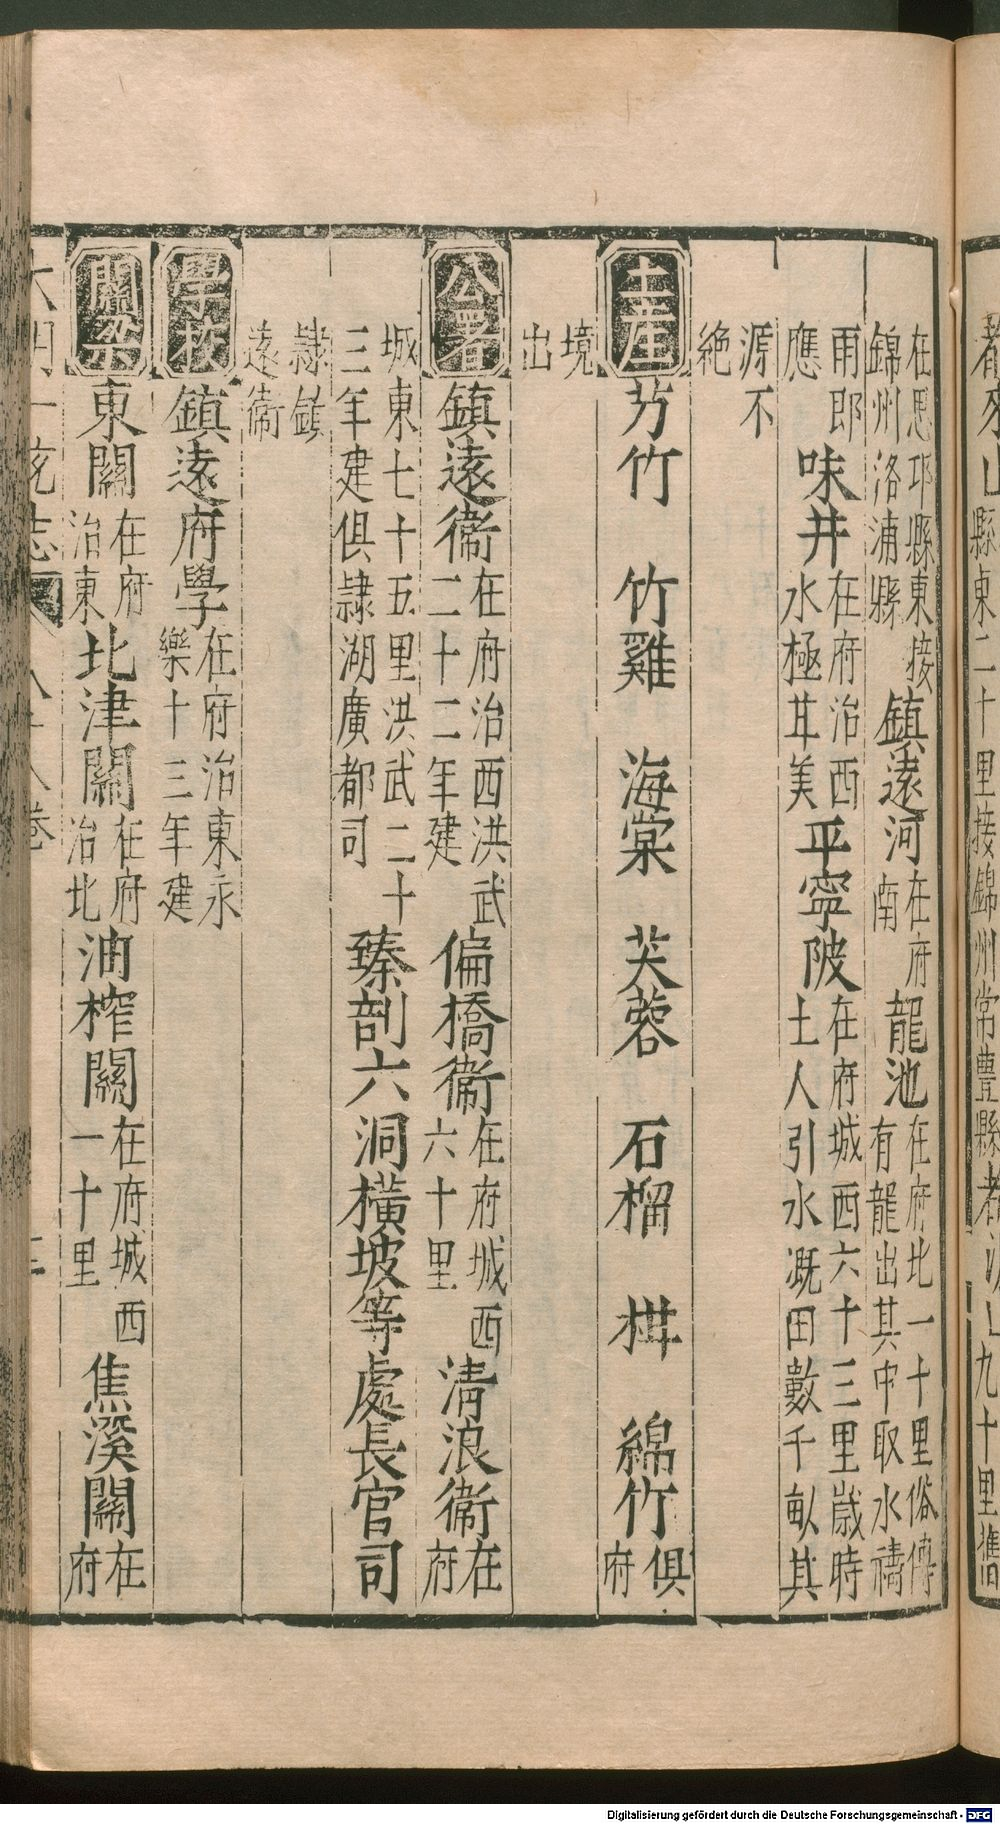 山縣東二十里接錦州常豊縣都
九十里舊
在思邛縣東接錦州洛浦縣 鎮遠河在府南 龍池在府北一十里俗傳有龍出其中取水禱
雨即應 味井在府治西水極甘美 平寧陂在府城西六十三里歲時土人引水溉田數千畝其
源不絶
土産 竹 竹雞 海棠 芙蓉 石榴 柑 綿竹俱府
境出
公署 鎮遠衞在府治西洪武二十二年建 偏橋衞在府城西六十里 清浪衞在府
城東七十五里洪武二十三年建俱隸湖廣都司 臻剖六洞橫坡等處長官司
隸鎮遠衞
學校 鎮遠府學在府治東永樂十三年建
關梁 東關在府治東 北津關在府治北 油榨關在府城西一十里 焦溪關在府
大明一統志 八十八卷 三
Digitalisierung gefördert durch die Deutsche Forschungsgemeinschaft - DFG